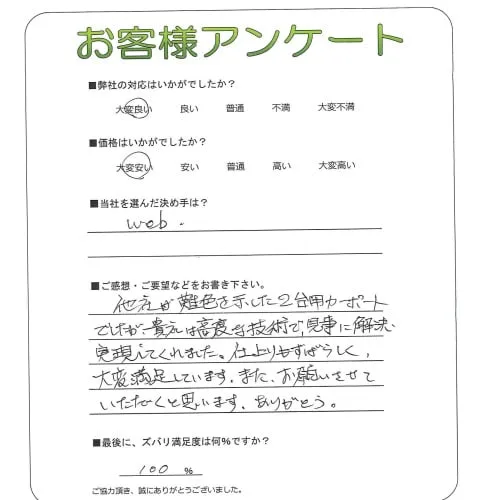 お客様アンケート
■弊社の対応はいかがでしたか?
大変良い 良い 普通 不満 大変不満
■価格はいかがでしたか?
大変安い 安い 普通 高い 大変高い
■当社を選んだ決め手は?
web.
■ご感想・ご要望などをお書き下さい。
他社が難色を示した2台用カーポート
でしたが、貴社は高度な技術で、見事に解決、
実現してくれました。仕上りもすばらしく、
大変満足しています。また、お願いさせて
いただくと思います。ありがとう。
■最後に、ズバリ満足度は何%ですか?
100 %
ご協力頂き、誠にありがとうございました。